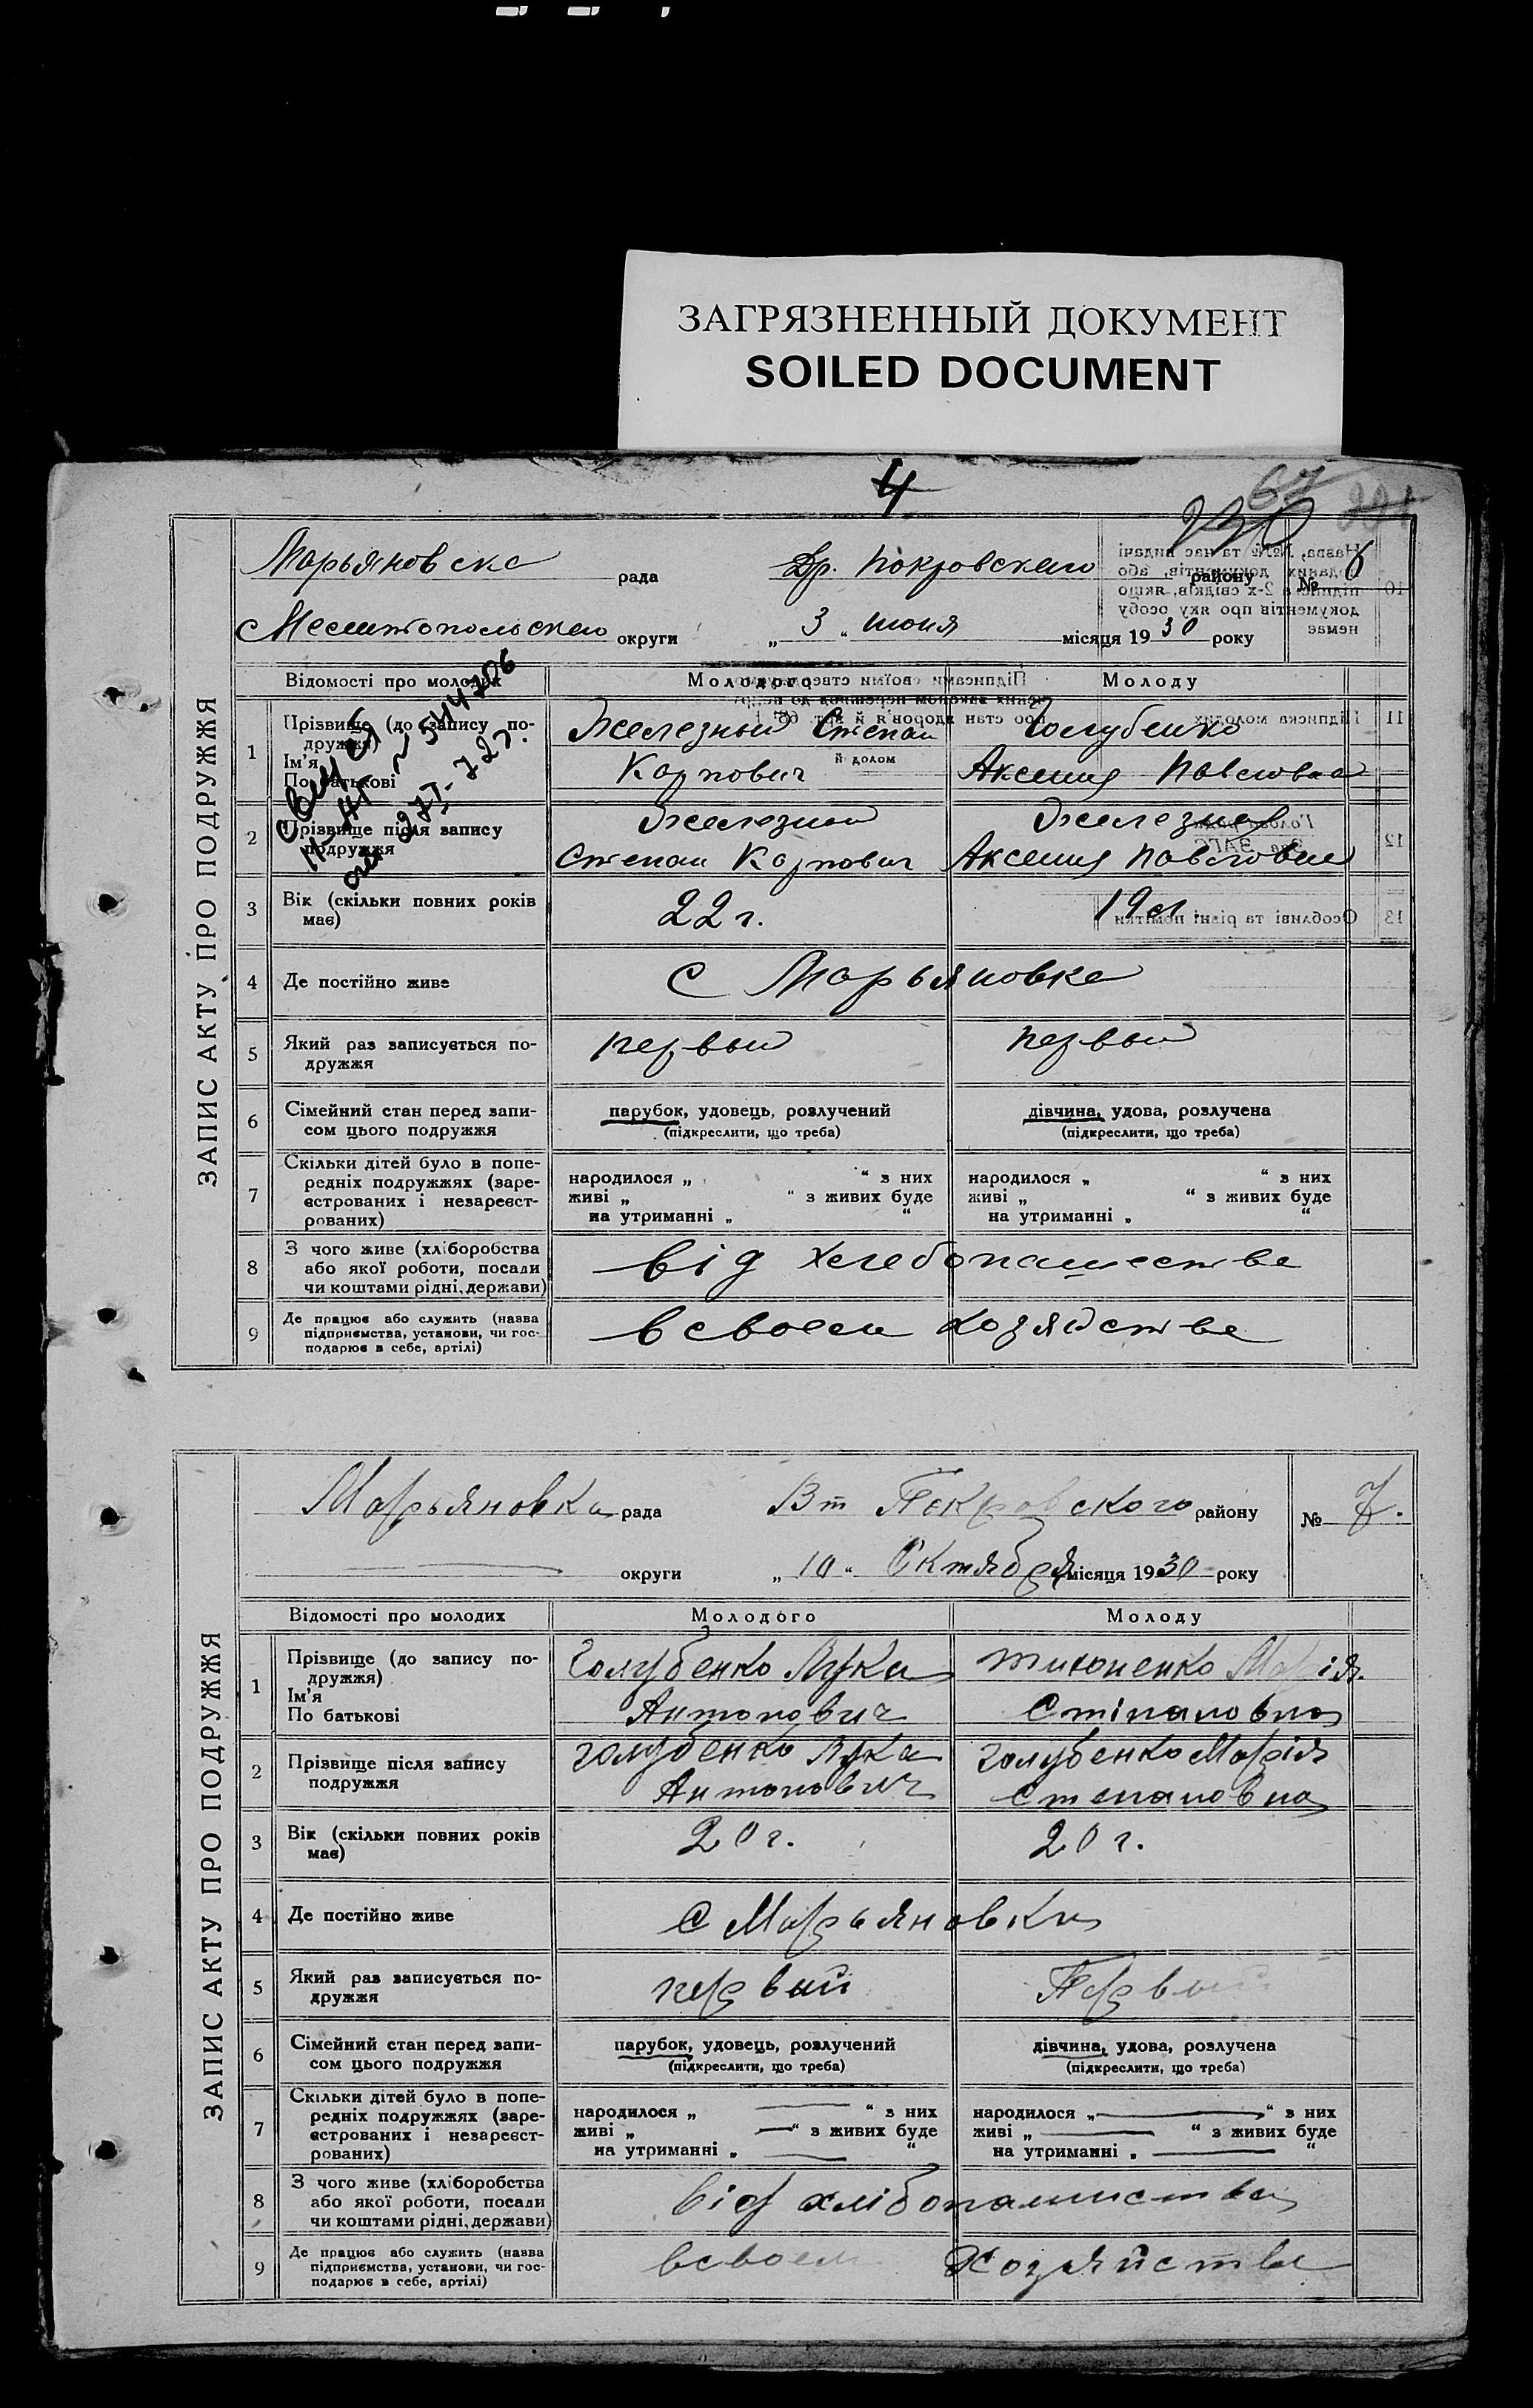 ЗАГРЯЗНЕННЫЙ ДОКУМЕНТ
SOILED DOCUMENT
4
67
ЗАПИС АКТУ ПРО ПОДРУЖЖЯ
Марьяновска рада Вр. Покровскаго району № 6
Мелитопольскаго округи „ 3 “ июня місяця 1930 року
Відомості про молодих Молодого Молоду
1 Прізвище (до запису по-
дружжя)
Ім'я
По батькові
Железный Степан
Карпович
Голубенко
Аксения Павловна
2 Прізвище після запису
подружжя
Железный
Степан Карпович
Железная
Аксения Павловна
3 Вік (скільки повних років
має)
22 г. 19 л
4 Де постійно живе с Марьяновка
5 Який раз записується по-
дружжя
первый первый
6 Сімейний стан перед запи-
сом цього подружжя
парубок, удовець, розлучений
(підкреслити, що треба)
дівчина, удова, розлучена
(підкреслити, що треба)
7 Скільки дітей було в попе-
редніх подружжях (заре-
єстрованих і незареєст-
рованих)
народилося „ “ з них
живі „ “ з живих буде
на утриманні „ “
народилося „ “ з них
живі „ “ з живих буде
на утриманні „ “
8 З чого живе (хліборобства
або якої роботи, посади
чи коштами рідні, держави)
від хлебопашества
9 Де працює або служить (назва
підприємства, установи, чи гос-
подарює в себе, артілі)
в своем хозяйстве
ЗАПИС АКТУ ПРО ПОДРУЖЖЯ
Марьяновка рада Вт Покровского району № 7.
округи „ 10 “ Октября місяця 1930 року
Відомості про молодих Молодого Молоду
1 Прізвище (до запису по-
дружжя)
Ім'я
По батькові
Голубенко Лука
Антонович
Тихоненко Марія
Стіпановна
2 Прізвище після запису
подружжя
Голубенко Лука
Антонович
Голубенко Марія
Степановна
3 Вік (скільки повних років
має)
20 г. 20 г.
4 Де постійно живе с Марьяновка
5 Який раз записується по-
дружжя
первый Первый
6 Сімейний стан перед запи-
сом цього подружжя
парубок, удовець, розлучений
(підкреслити, що треба)
дівчина, удова, розлучена
(підкреслити, що треба)
7 Скільки дітей було в попе-
редніх подружжях (заре-
єстрованих і незареєст-
рованих)
народилося „ — “ з них
живі „ — “ з живих буде
на утриманні „ — “
народилося „ — “ з них
живі „ — “ з живих буде
на утриманні „ — “
8 З чого живе (хліборобства
або якої роботи, посади
чи коштами рідні, держави)
від хлібопашиства
9 Де працює або служить (назва
підприємства, установи, чи гос-
подарює в себе, артілі)
в своем Хозяйстве